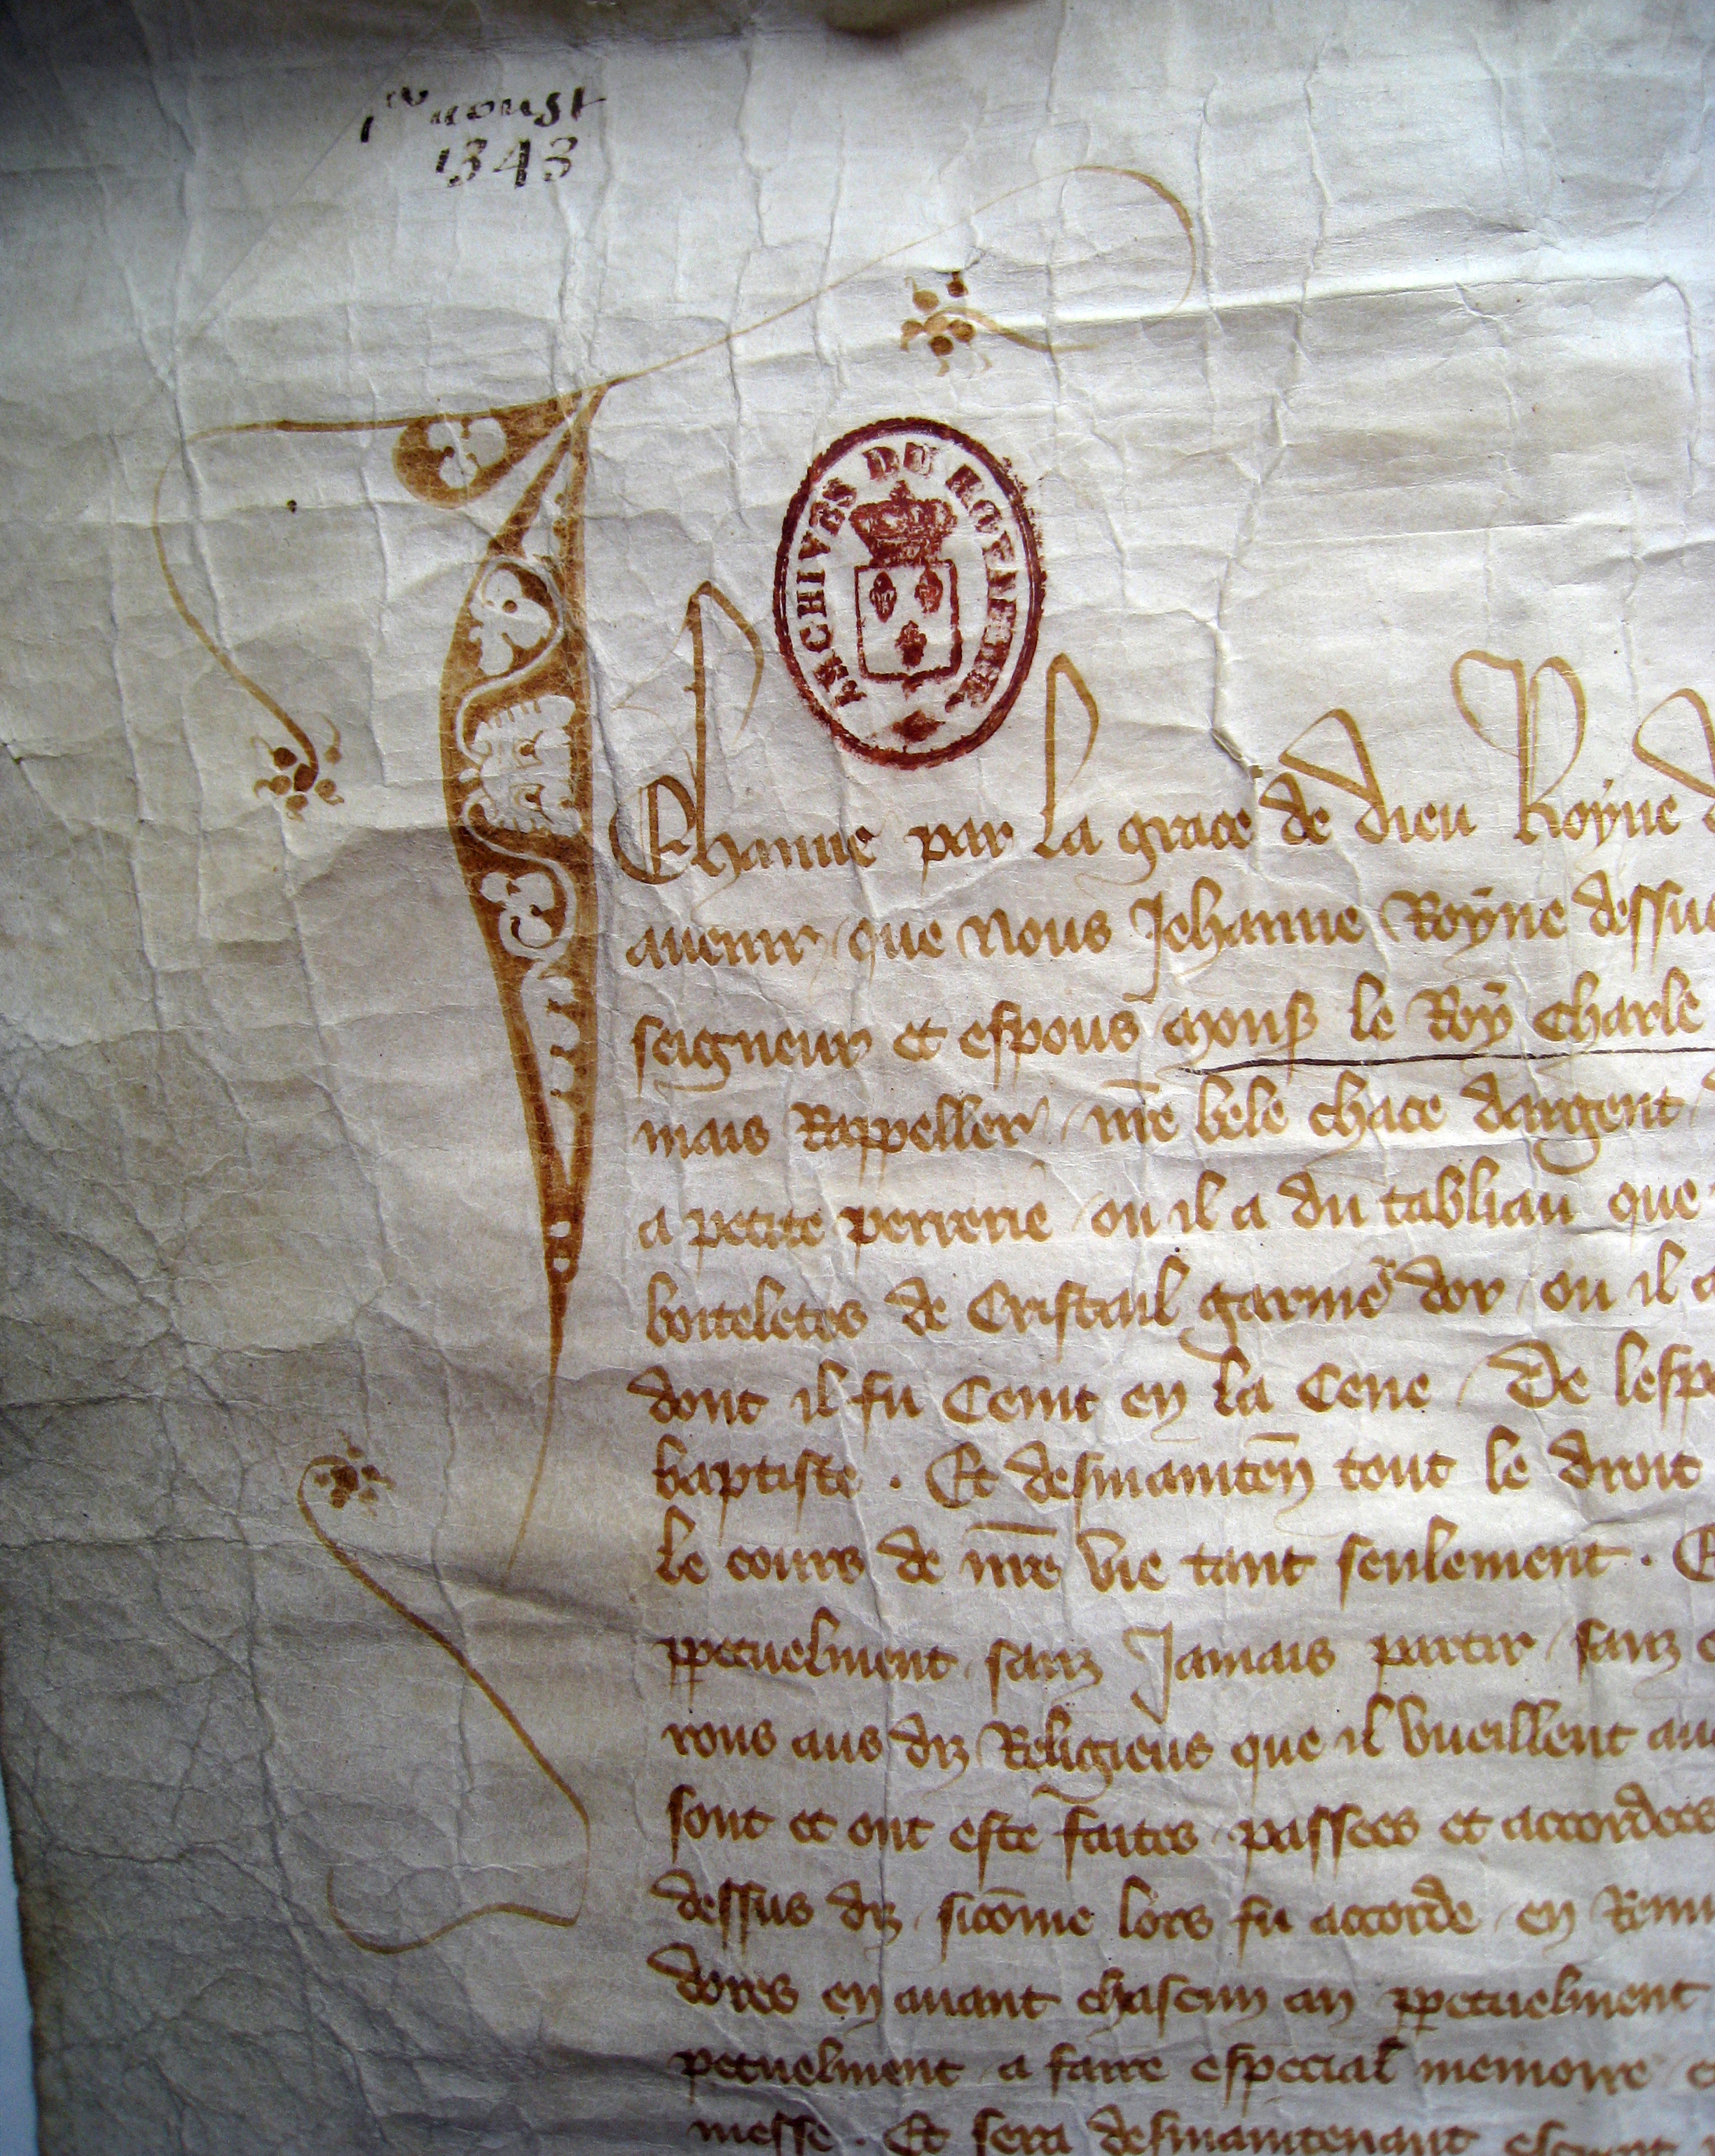 1er aoust
1343
ARCHIVES DU ROYAUME
Jehanne par la grace de dieu Royne
avenir que Nous Jehanne Royne dessus
seigneur et espous mons le Roy Charle
mais Rappeller nre bele chace dargent
a petite perrerie ou il a du tabliau que
boiteletes de Cristail garnies dor ou il a
dont il fu Ceint en la Cene De
baptiste . Et desmainten tout le droit
le cours de nre vie tant seulement . Et
ppetuelment sanz Jamais partir sanz
rons aus diz Religieus que il vueillent
sont et ont este faites passees et accordees
dessus diz sicome lors fu accorde en
dores en avant chascun an ppetuelment
petuelment a faire especial memoire
messe . Et sera desmaintenant